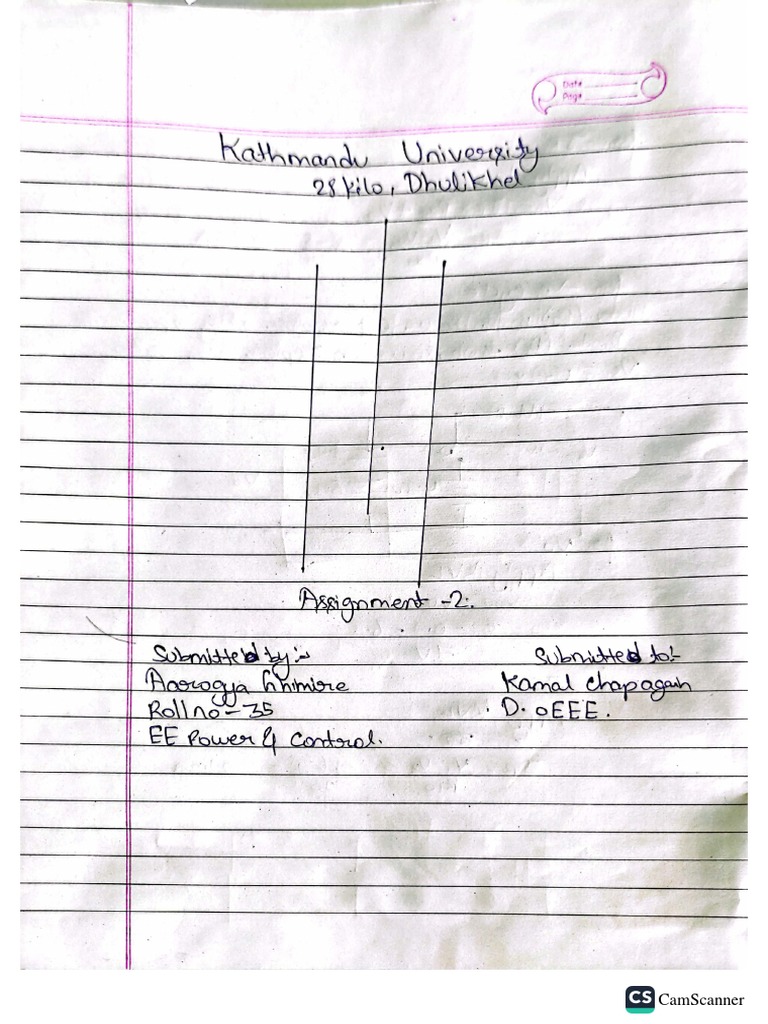 Date
Page
Kathmandu University
28 kilo, Dhulikhel
Assignment -2:
Submitted by:-
Aarogya Ghimire
Roll no - 35
EE Power & Control.
Submitted to:-
Kamal Chapagain
D. oEEE.
CS CamScanner